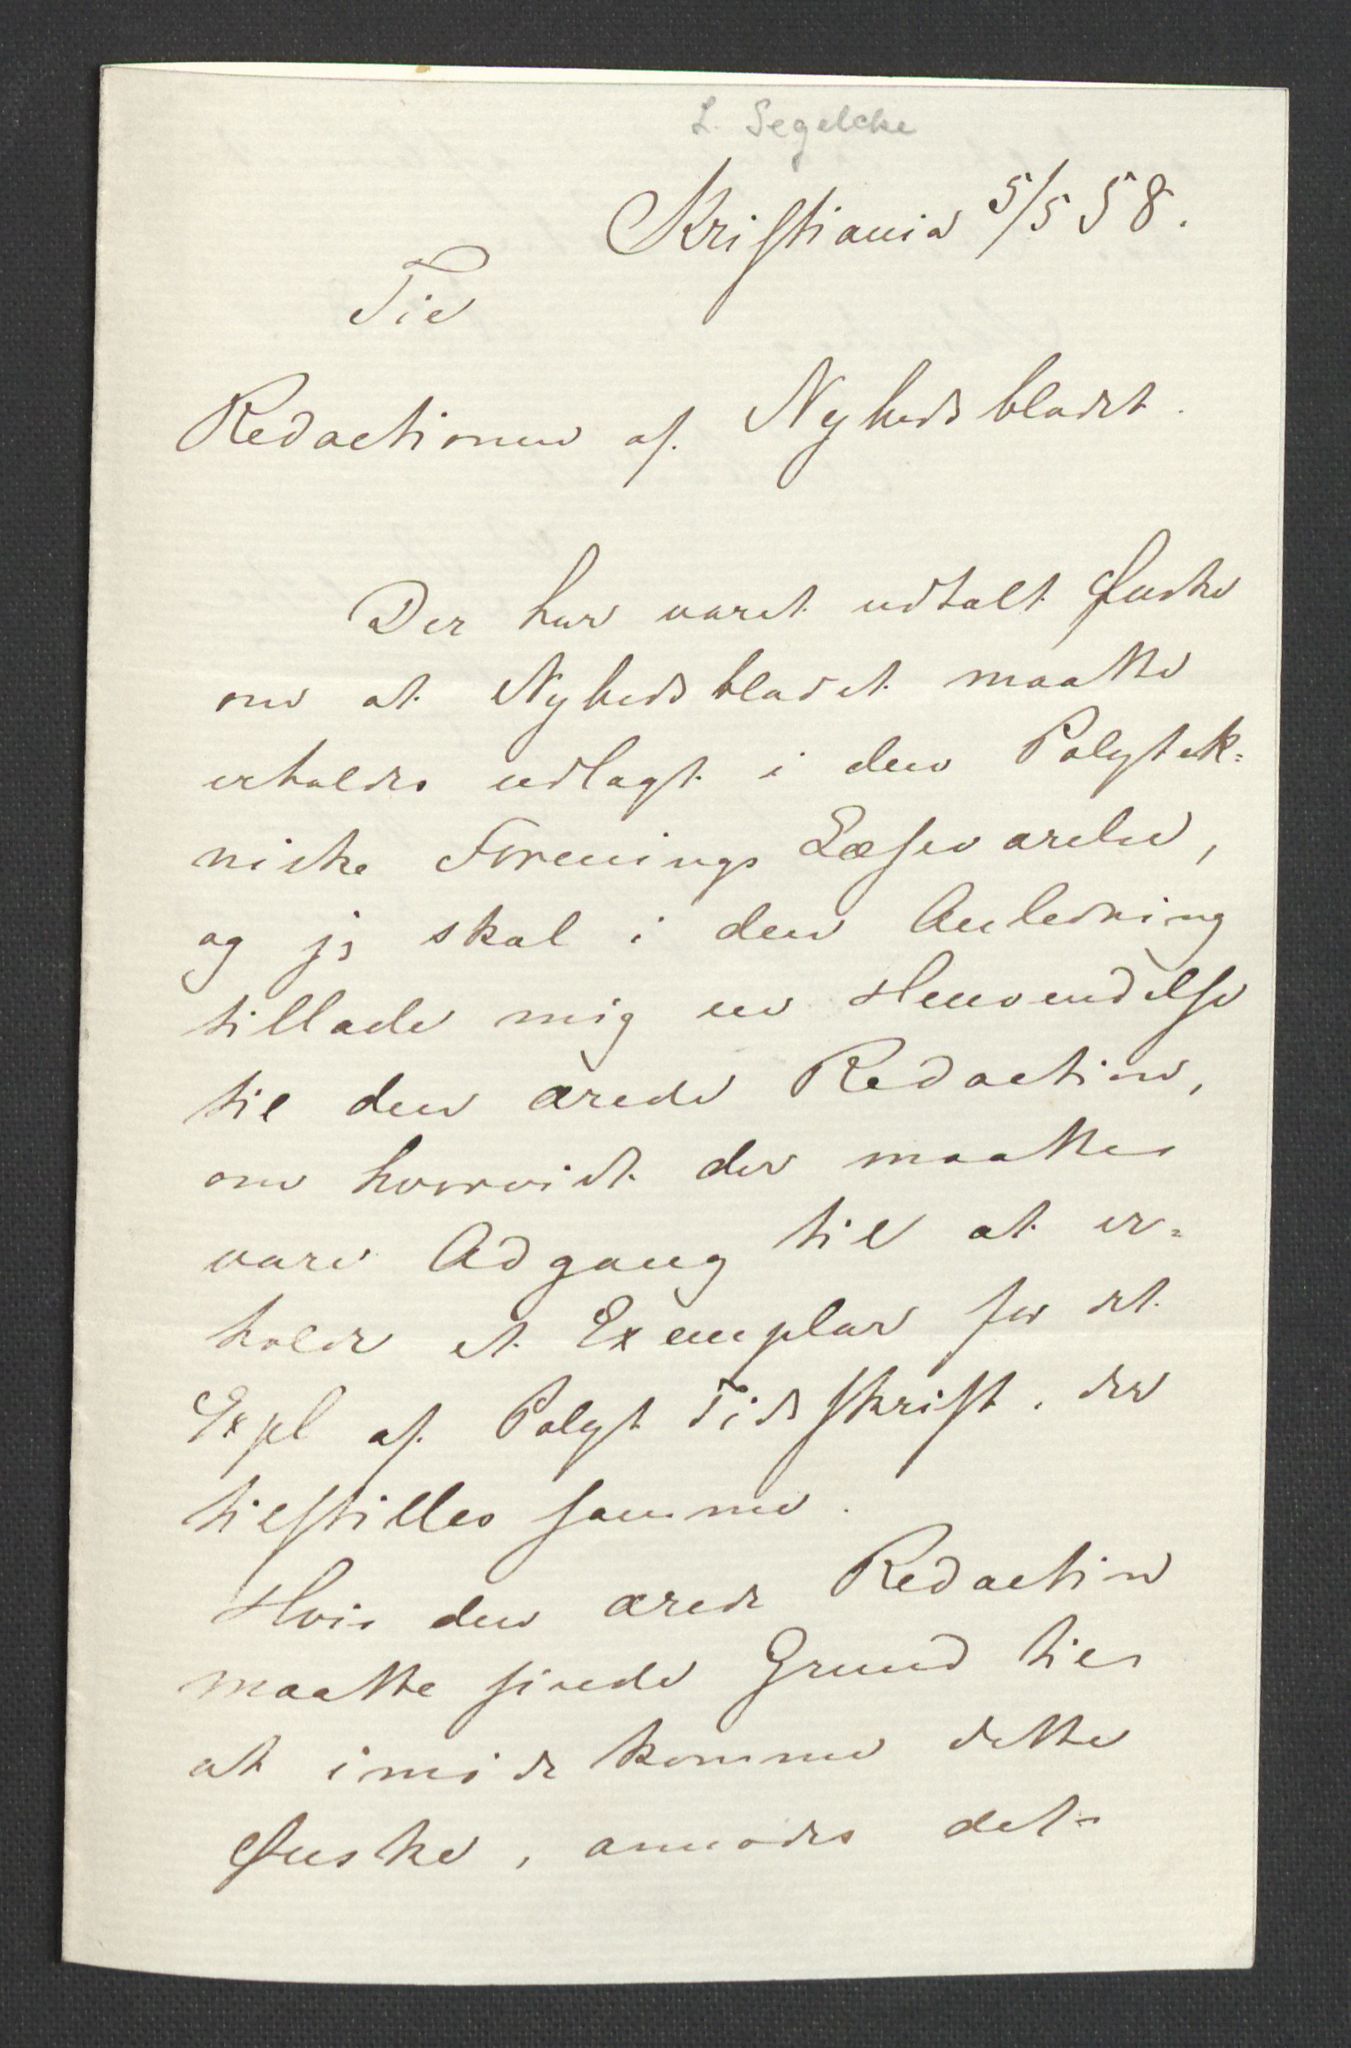 L. Segelcke
Kristiania 5/5 58.
Til
Redactionen af Nyhedsbladet.
Der har været udtalt Ønske
om at Nyhedsbladet maatte
erholdes udlagt i den Polytek=
niske Forenings Læseværelse,
og jeg skal i den Anledning
tillade mig en Henvendelse
til den ærede Redaction,
om hvorvidt der maatte
være Adgang til at er=
holde et Exemplar for det
Expl af Polyt Tidsskrift, der
tilstilles samme.
Hvis den ærede Redaction
maatte finde Grund til
at imødekomme dette
Ønske, anmodes det=